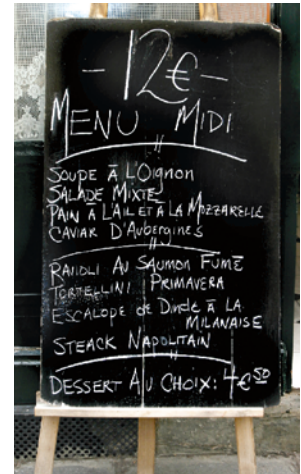 -12€-
MENU MIDI
SOUPE À L'OIGNON
SALADE MIXTE
PAIN À L'AIL ET À LA MOZZARELLE
CAVIAR D'AUBERGINES
RAIOLI AU SAUMON FUMÉ
TORTELLINI PRIMAVERA
ESCALOPE de DINDE À LA
MILANAISE
STEACK NAPOLITAIN
DESSERT AU CHOIX: 4€50